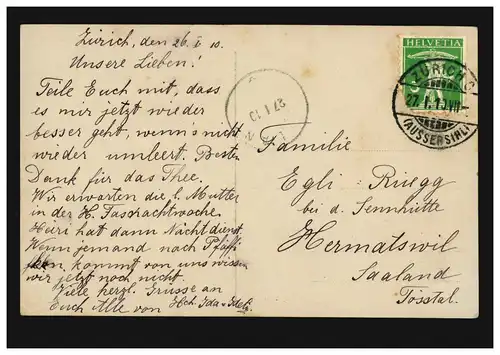 Zürich, den 26. I. 10.
Unsere Lieben!
Teile Euch mit, dass
es mir jetzt wieder
besser geht, wenn's nicht
wieder umleert. Besten
Dank für das Thee.
Wir erwarten die l. Mutter
in der H. Fasnachtwoche.
Heiri hat dann Nichtdienst.
Wenn jemand nach Pfäffi-
kon kommt von uns wissen
wir jetzt noch nicht.
Viele herzl. Grüsse an
Euch Alle von Hch. Ida
Familie
Egli-Rüegg
bei d. Sennhütte
Hermatswil
Saaland
Tösstal.
HELVETIA
5
ZÜRICH 9
27. I. 10. VII
(AUSSERSIHL)
27 I 10